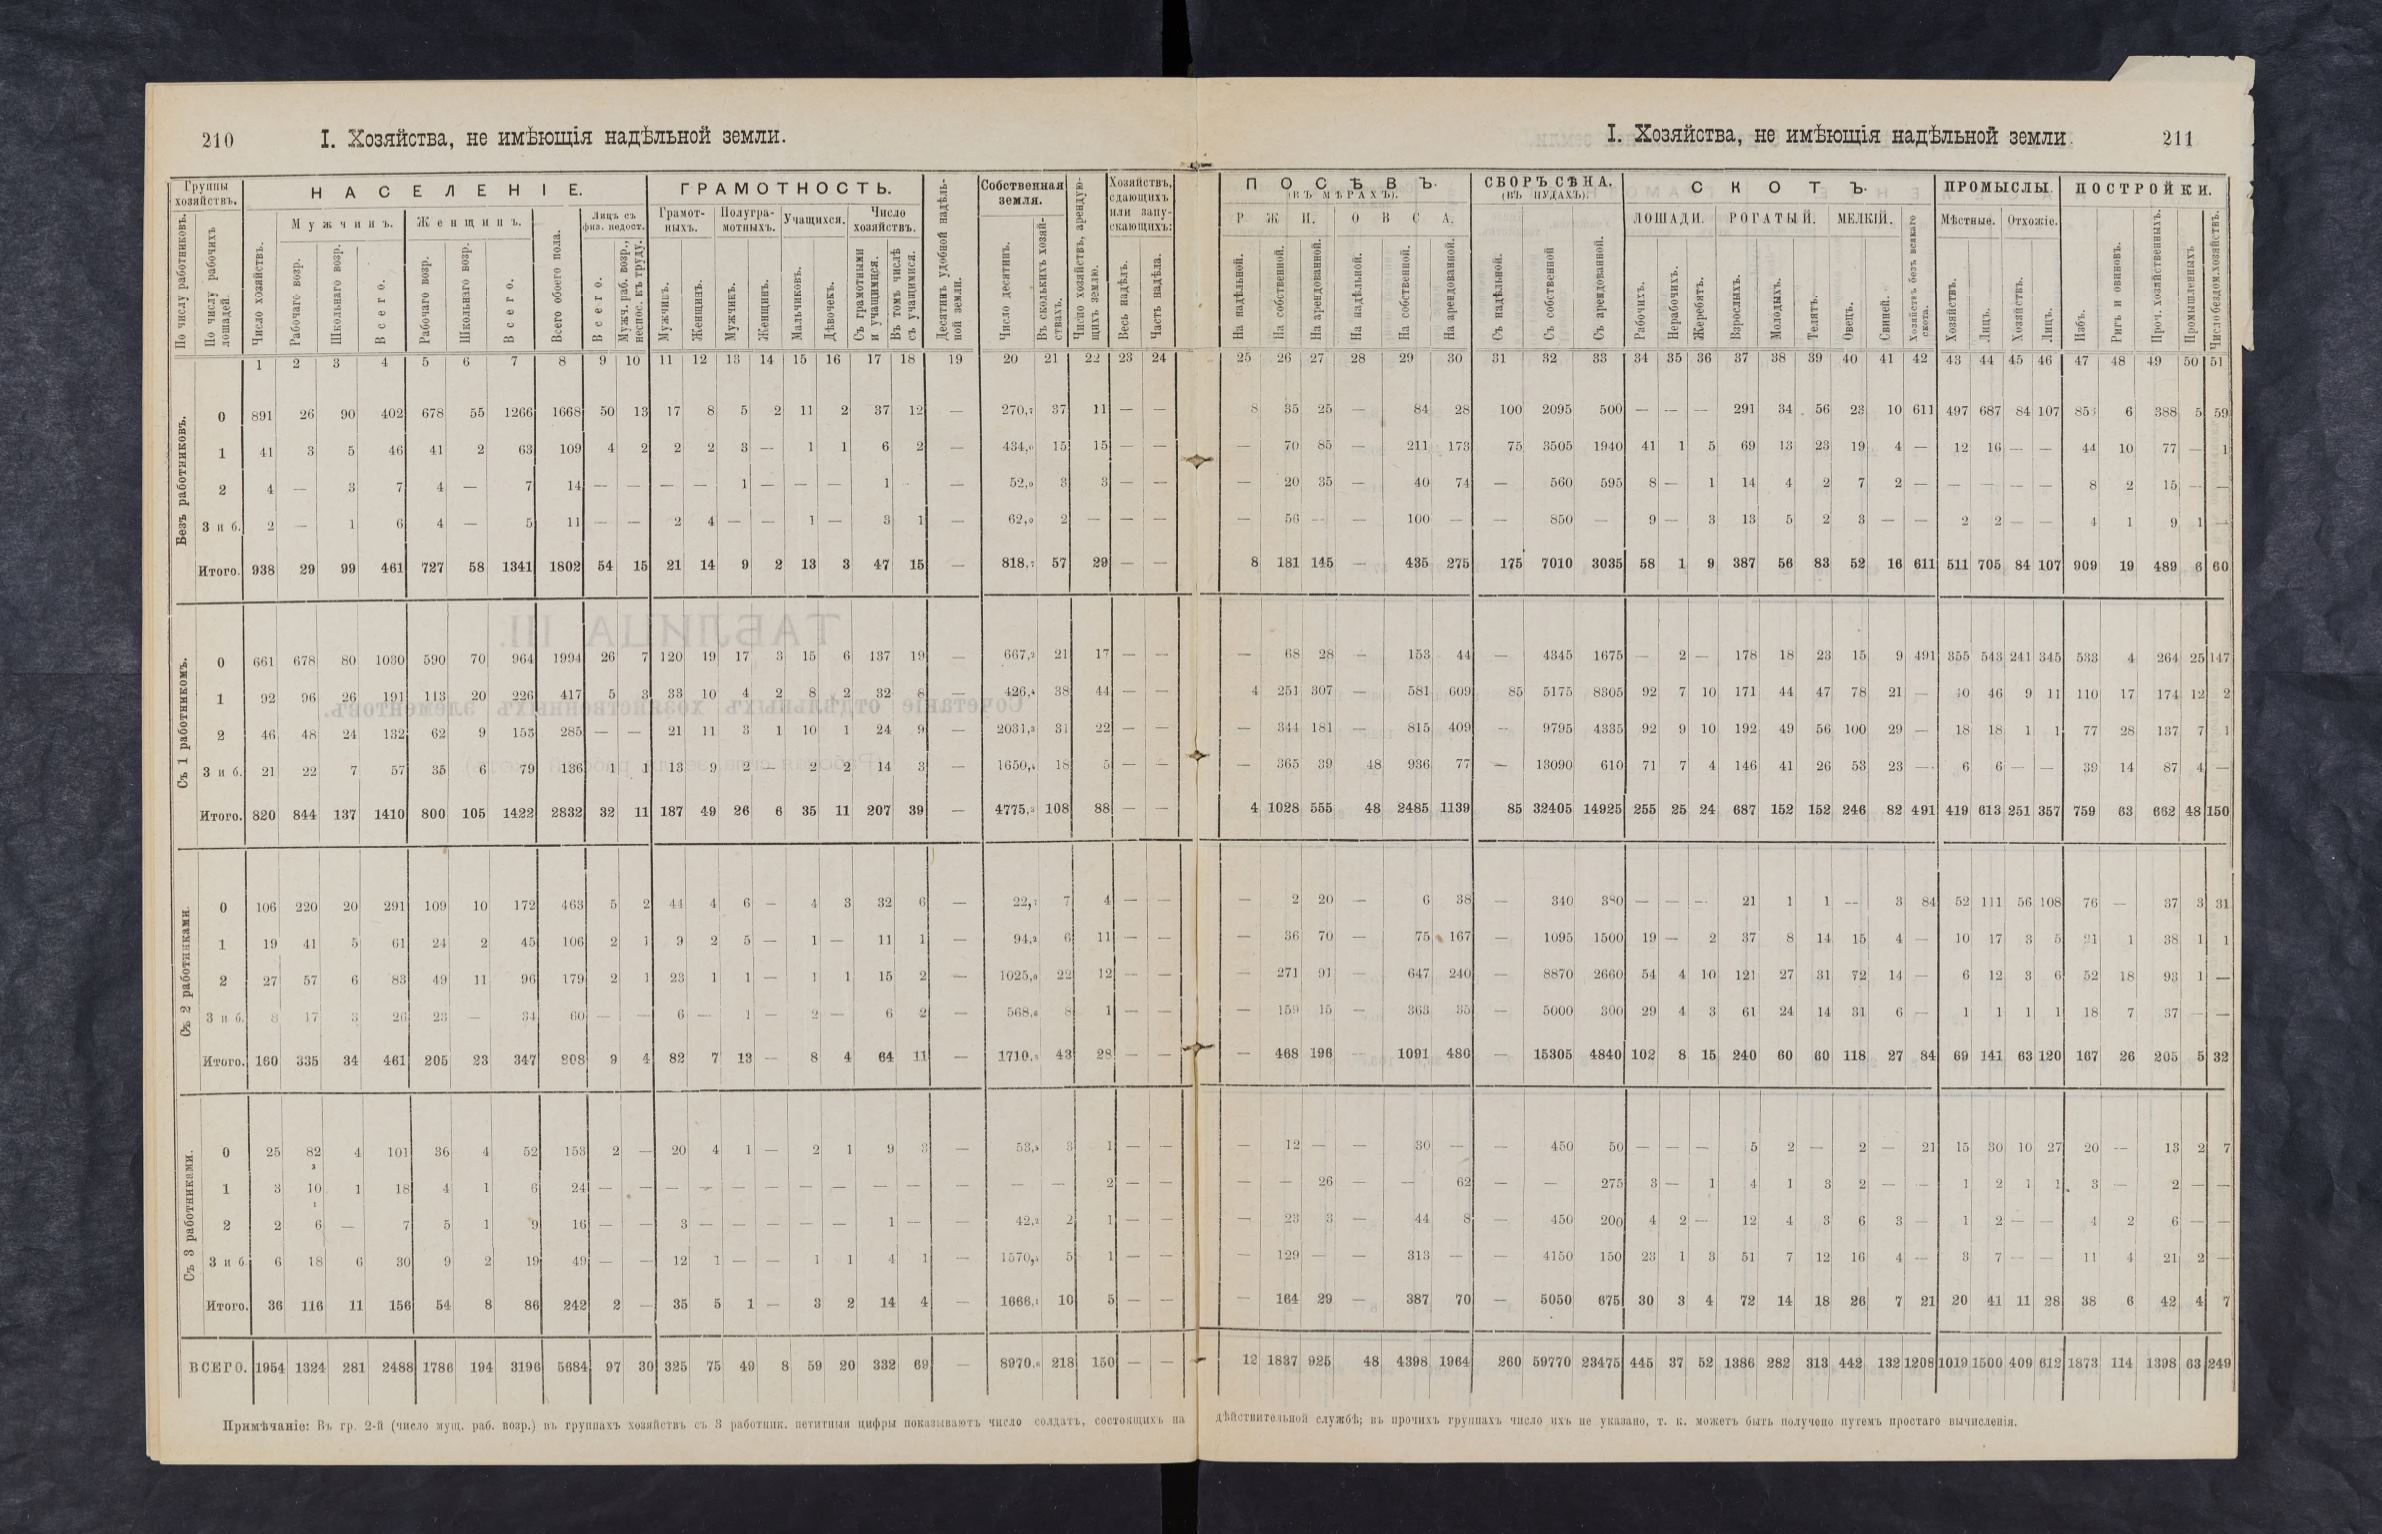 210
I. Хозяйства, не имѣющія надѣльной земли.
I. Хозяйства, не имѣющія надѣльной земли
211
Группы хозяйствъ.
По числу работниковъ.
По числу рабочихъ лошадей.
НАСЕЛЕНІЕ.
Число хозяйствъ.
Мужчинъ.
Рабочаго возр.
Школьнаго возр.
Всего.
Женщинъ.
Рабочаго возр.
Школьнаго возр.
Всего.
Всего обоего пола.
Лицъ съ физ. недост.
Всего.
Мужч. раб. возр., неспос. къ труду.
ГРАМОТНОСТЬ.
Грамотныхъ.
Мужчинъ.
Женщинъ.
Полуграмотныхъ.
Мужчинъ.
Женщинъ.
Учащихся.
Мальчиковъ.
Дѣвочекъ.
Число хозяйствъ.
Съ грамотными и учащимися.
Въ томъ числѣ съ учащимися.
Десятинъ удобной надѣльной земли.
Собственная земля.
Число десятинъ.
Въ сколькихъ хозяйствахъ.
Число хозяйствъ, арендующихъ землю.
Хозяйствъ, сдающихъ или запускающихъ:
Весь надѣлъ.
Часть надѣла.
ПОСѢВЪ.
(ВЪ МѢРАХЪ).
РЖИ.
На надѣльной.
На собственной.
На арендованной.
ОВСА.
На надѣльной.
На собственной.
На арендованной.
СБОРЪ СѢНА.
(ВЪ ПУДАХЪ).
Съ надѣльной.
Съ собственной
Съ арендованной.
СКОТЪ.
ЛОШАДИ.
Рабочихъ.
Нерабочихъ.
Жеребятъ.
РОГАТЫЙ.
Взрослыхъ.
Молодыхъ.
Телятъ.
МЕЛКІЙ.
Овецъ.
Свиней.
Хозяйствъ безъ всякаго скота.
ПРОМЫСЛЫ.
Мѣстные.
Хозяйствъ.
Лицъ.
Отхожіе.
Хозяйствъ.
Лицъ.
ПОСТРОЙКИ.
Избъ.
Ригъ и овиновъ.
Проч. хозяйственныхъ.
Промышленныхъ
Число бездом. хозяйствъ.
1 2 3 4 5 6 7 8 9 10 11 12 13 14 15 16 17 18 19 20 21 22 23 24 25 26 27 28 29 30 31 32 33 34 35 36 37 38 39 40 41 42 43 44 45 46 47 48 49 50 51
Безъ работниковъ.
0 891 26 90 402 678 55 1266 1668 50 13 17 8 5 2 11 2 37 12 — 270,7 37 11 — — 8 35 25 — 84 28 100 2095 500 — — — 291 34 56 23 10 611 497 687 84 107 853 6 388 5 59
1 41 3 5 46 41 2 63 109 4 2 2 2 3 — 1 1 6 2 — 434,0 15 15 — — — 70 85 — 211 173 75 3505 1940 41 1 5 69 13 23 19 4 — 12 16 — — 44 10 77 — 1
2 4 — 3 7 4 — 7 14 — — — — 1 — — — 1 — 52,0 3 3 — — — 20 35 — 40 74 — 560 595 8 — 1 14 4 2 7 2 — — — — — 8 2 15 — —
3 и б. 2 — 1 6 4 — 5 11 — — 2 4 — — 1 — 3 1 — 62,0 2 — — — — 56 — — 100 — — 850 — 9 — 3 13 5 2 3 — — 2 2 — — 4 1 9 1 —
Итого. 938 29 99 461 727 58 1341 1802 54 15 21 14 9 2 13 3 47 15 — 818,7 57 29 — — 8 181 145 — 435 275 175 7010 3035 58 1 9 387 56 83 52 16 611 511 705 84 107 909 19 489 6 60
Съ 1 работникомъ.
0 661 678 80 1030 590 70 964 1994 26 7 120 19 17 3 15 6 137 19 — 667,2 21 17 — — — 68 28 — 153 44 — 4345 1675 — 2 — 178 18 23 15 9 491 355 543 241 345 533 4 264 25 147
1 92 96 26 191 113 20 226 417 5 3 33 10 4 2 8 2 32 8 — 426,4 38 44 — — 4 251 307 — 581 609 85 5175 8305 92 7 10 171 44 47 78 21 — 40 46 9 11 110 17 174 12 2
2 46 48 24 132 62 9 153 285 — — 21 11 3 1 10 1 24 9 — 2031,3 31 22 — — — 344 181 — 815 409 — 9795 4335 92 9 10 192 49 56 100 29 — 18 18 1 1 77 28 137 7 1
3 и б. 21 22 7 57 35 6 79 136 1 1 13 9 2 — 2 2 14 3 — 1650,4 18 5 — — — 365 39 48 936 77 — 13090 610 71 7 4 146 41 26 53 23 — 6 6 — — 39 14 87 4 —
Итого. 820 844 137 1410 800 105 1422 2832 32 11 187 49 26 6 35 11 207 39 — 4775,3 108 88 — — 4 1028 555 48 2485 1139 85 32405 14925 255 25 24 687 152 152 246 82 491 419 613 251 357 759 63 662 48 150
Съ 2 работниками.
0 106 220 20 291 109 10 172 463 5 2 44 4 6 — 4 3 32 6 — 22,7 7 4 — — — 2 20 — 6 38 — 340 380 — — — 21 1 1 — 3 84 52 111 56 108 76 — 37 3 31
1 19 41 5 61 24 2 45 106 2 1 9 2 5 — 1 — 11 1 — 94,2 6 11 — — — 36 70 — 75 167 — 1095 1500 19 — 2 37 8 14 15 4 — 10 17 3 5 21 1 38 1 1
2 27 57 6 83 49 11 96 179 2 1 23 1 1 — 1 1 15 2 — 1025,0 22 12 — — — 271 91 — 647 240 — 8870 2660 54 4 10 121 27 31 72 14 — 6 12 3 6 52 18 93 1 —
3 и б. 8 17 3 26 23 — 34 60 — — 6 — 1 — 2 — 6 2 — 568,6 8 1 — — — 159 15 — 363 35 — 5000 300 29 4 3 61 24 14 31 6 — 1 1 1 1 18 7 37 — —
Итого. 160 335 34 461 205 23 347 808 9 4 82 7 13 — 8 4 64 11 — 1710,5 43 28 — — — 468 196 — 1091 480 — 15305 4840 102 8 15 240 60 60 118 27 84 69 141 63 120 167 26 205 5 32
Съ 3 работниками.
0 25 82 4 101 36 4 52 153 2 — 20 4 1 — 2 1 9 3 — 53,5 3 1 — — — 12 — — 30 — — 450 50 — — — 5 2 — 2 — 21 15 30 10 27 20 — 13 2 7
3
1 3 10 1 18 4 1 6 24 — — — — — — — — — — — — — 2 — — — — 26 — — 62 — — 275 3 — 1 4 1 3 2 — — 1 2 1 1 3 — 2 — —
1
2 2 6 — 7 5 1 9 16 — — 3 — — — — — 1 — — 42,2 2 1 — — — 23 3 — 44 8 — 450 200 4 2 — 12 4 3 6 3 — 1 2 — — 4 2 6 — —
3 и б. 6 18 6 30 9 2 19 49 — — 12 1 — — 1 1 4 1 — 1570,4 5 1 — — — 129 — — 313 — — 4150 150 23 1 3 51 7 12 16 4 — 3 7 — — 11 4 21 2 —
Итого. 36 116 11 156 54 8 86 242 2 — 35 5 1 — 3 2 14 4 — 1666,1 10 5 — — — 164 29 — 387 70 — 5050 675 30 3 4 72 14 18 26 7 21 20 41 11 28 38 6 42 4 7
ВСЕГО. 1954 1324 281 2488 1786 194 3196 5684 97 30 325 75 49 8 59 20 332 69 — 8970,6 218 150 — — 12 1837 925 48 4398 1964 260 59770 23475 445 37 52 1386 282 313 442 132 1208 1019 1500 409 612 1873 114 1398 63 249
Примѣчаніе: Въ гр. 2-й (число мущ. раб. возр.) въ группахъ хозяйствъ съ 3 работник. петитныя цифры показываютъ число солдатъ, состоящихъ на дѣйствительной службѣ; въ прочихъ группахъ число ихъ не указано, т. к. можетъ быть получено путемъ простаго вычисленія.